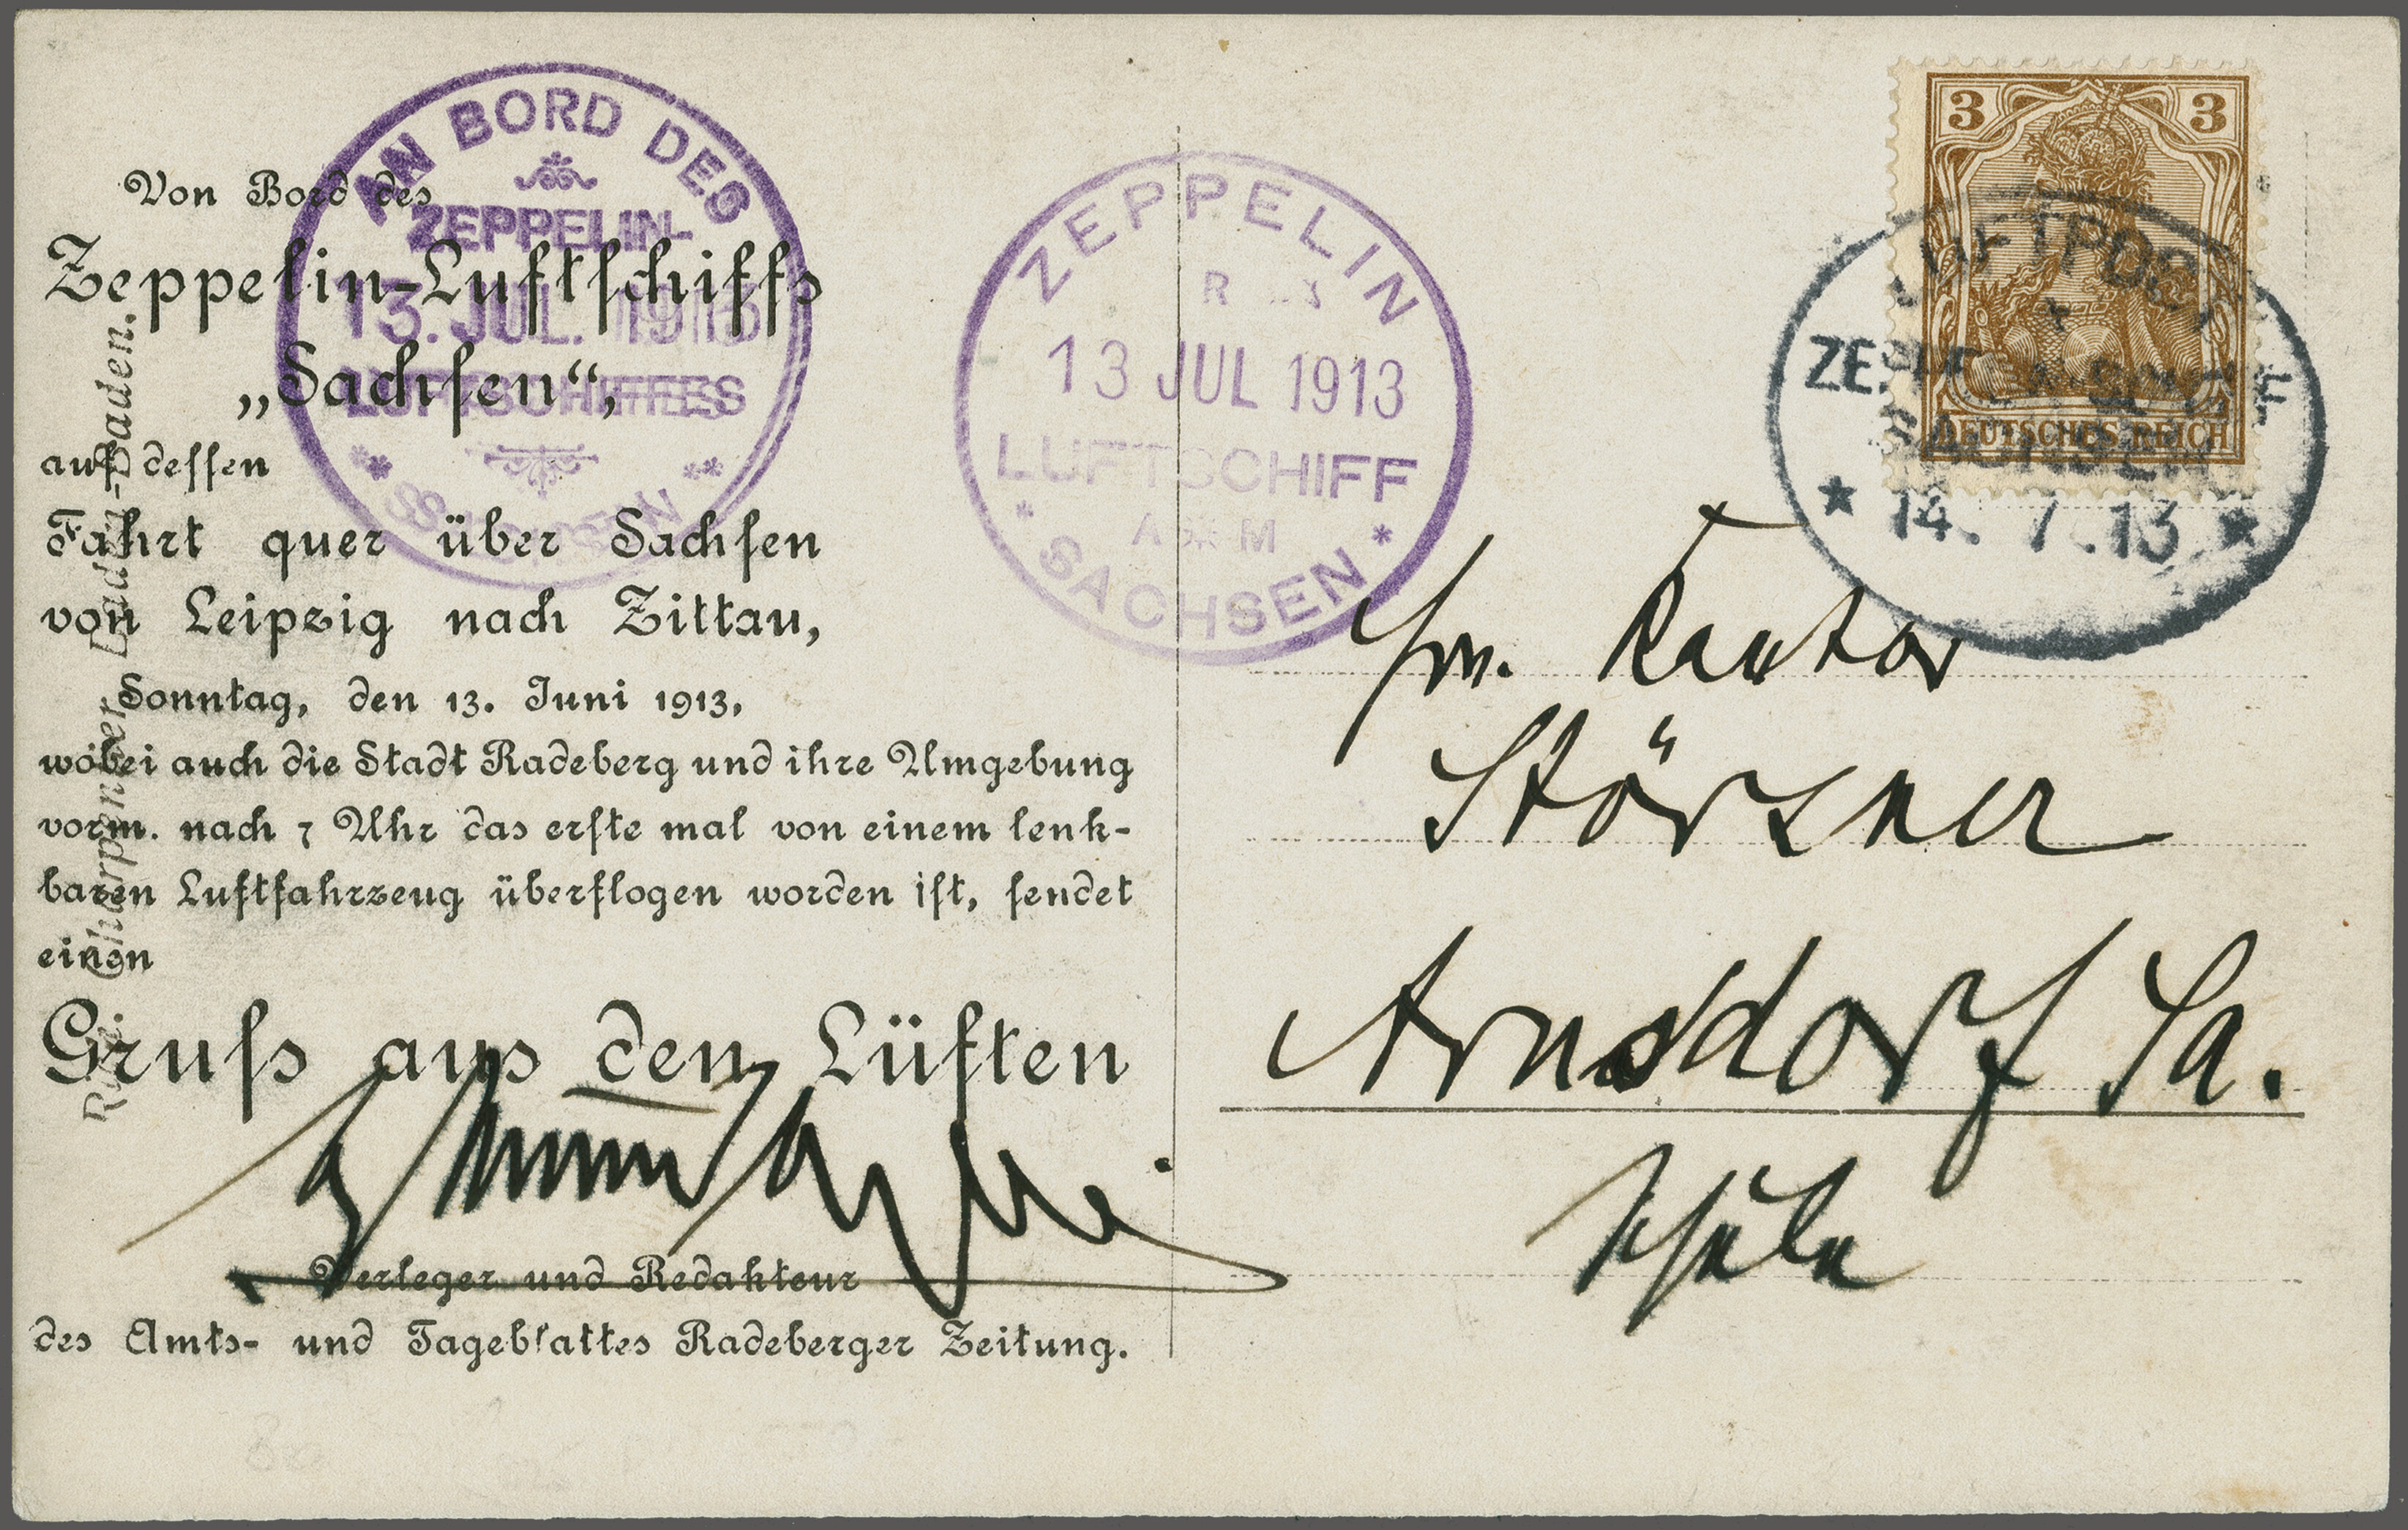 Von Bord des
Zeppelin-Luftschiffs
„Sachsen“,
auf dessen
Fahrt quer über Sachsen
von Leipzig nach Zittau,
Sonntag, den 13. Juni 1913,
wobei auch die Stadt Radeberg und ihre Umgebung
vorm. nach 7 Uhr das erste mal von einem lenk-
baren Luftfahrzeug überflogen worden ist, sendet
einen
Gruss aus den Lüften
Verleger und Redakteur
des Amts- und Tageblattes Radeberger Zeitung.
Charpentier, Baden-Baden.
AN BORD DES
ZEPPELIN-
13. JUL. 1913
LUFTSCHIFFES
SACHSEN
ZEPPELIN
13 JUL 1913
LUFTSCHIFF
SACHSEN
3 3
DEUTSCHES REICH
LUFTPOST
SACHSEN
14. 7. 13
Hrn. Kantor
Störzner
Arnsdorf Sa.